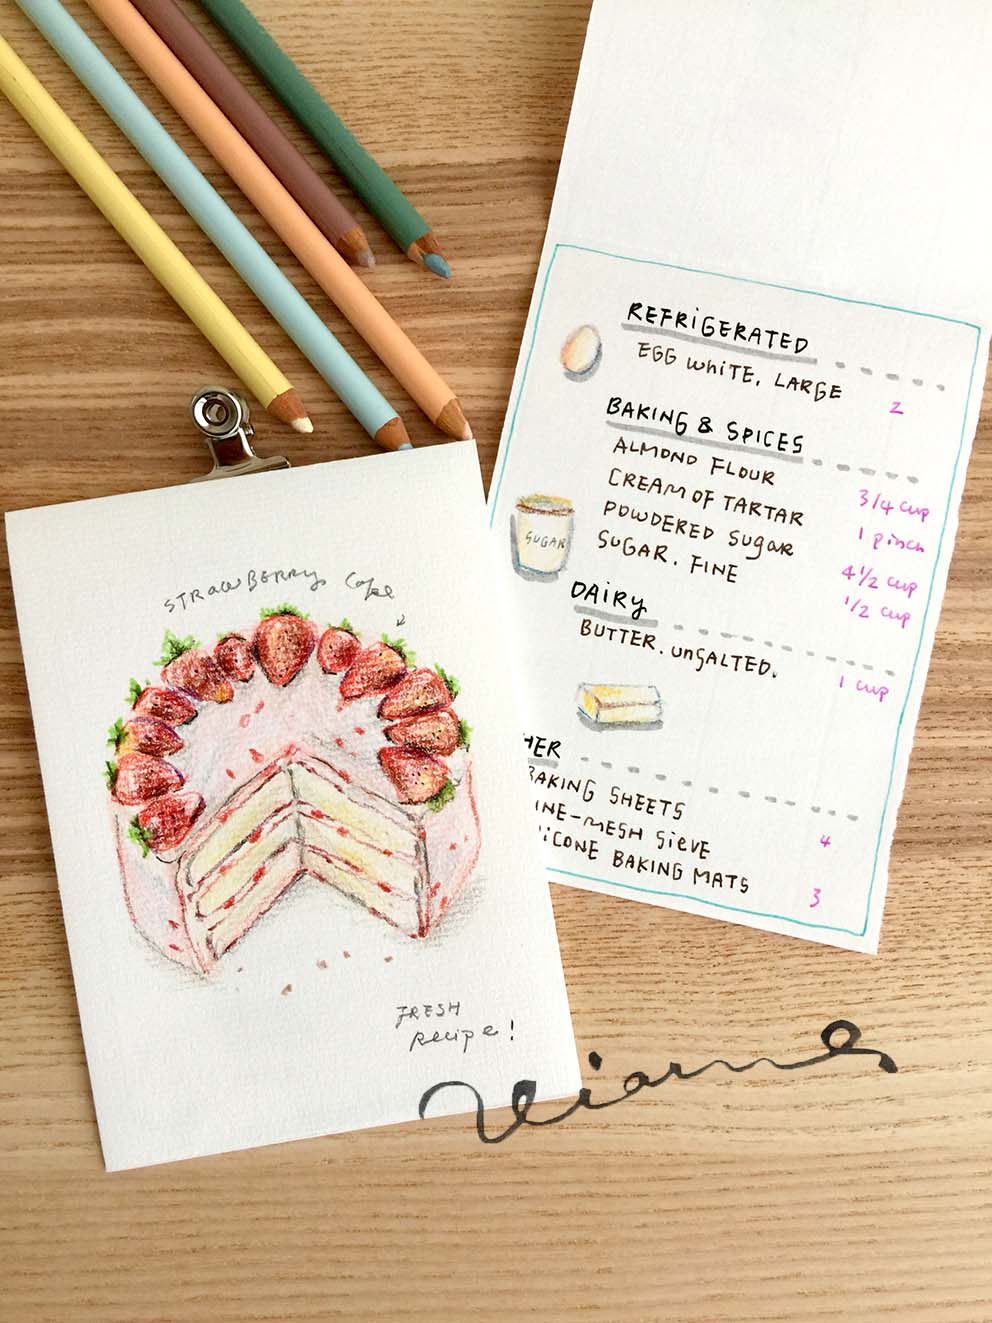 STRAWBERRY Cafe
FRESH
Recipe!
REFRIGERATED
EGG WHITE, LARGE 2
BAKING & SPICES
ALMOND FLOUR 3/4 cup
CREAM OF TARTAR 1 pinch
POWDERED SUGAR 4 1/2 cup
SUGAR. FINE 1/2 cup
SUGAR
DAIRY
BUTTER. UNSALTED. 1 cup
HER
BAKING SHEETS 4
INE-MESH SIEVE
ICONE BAKING MATS 3